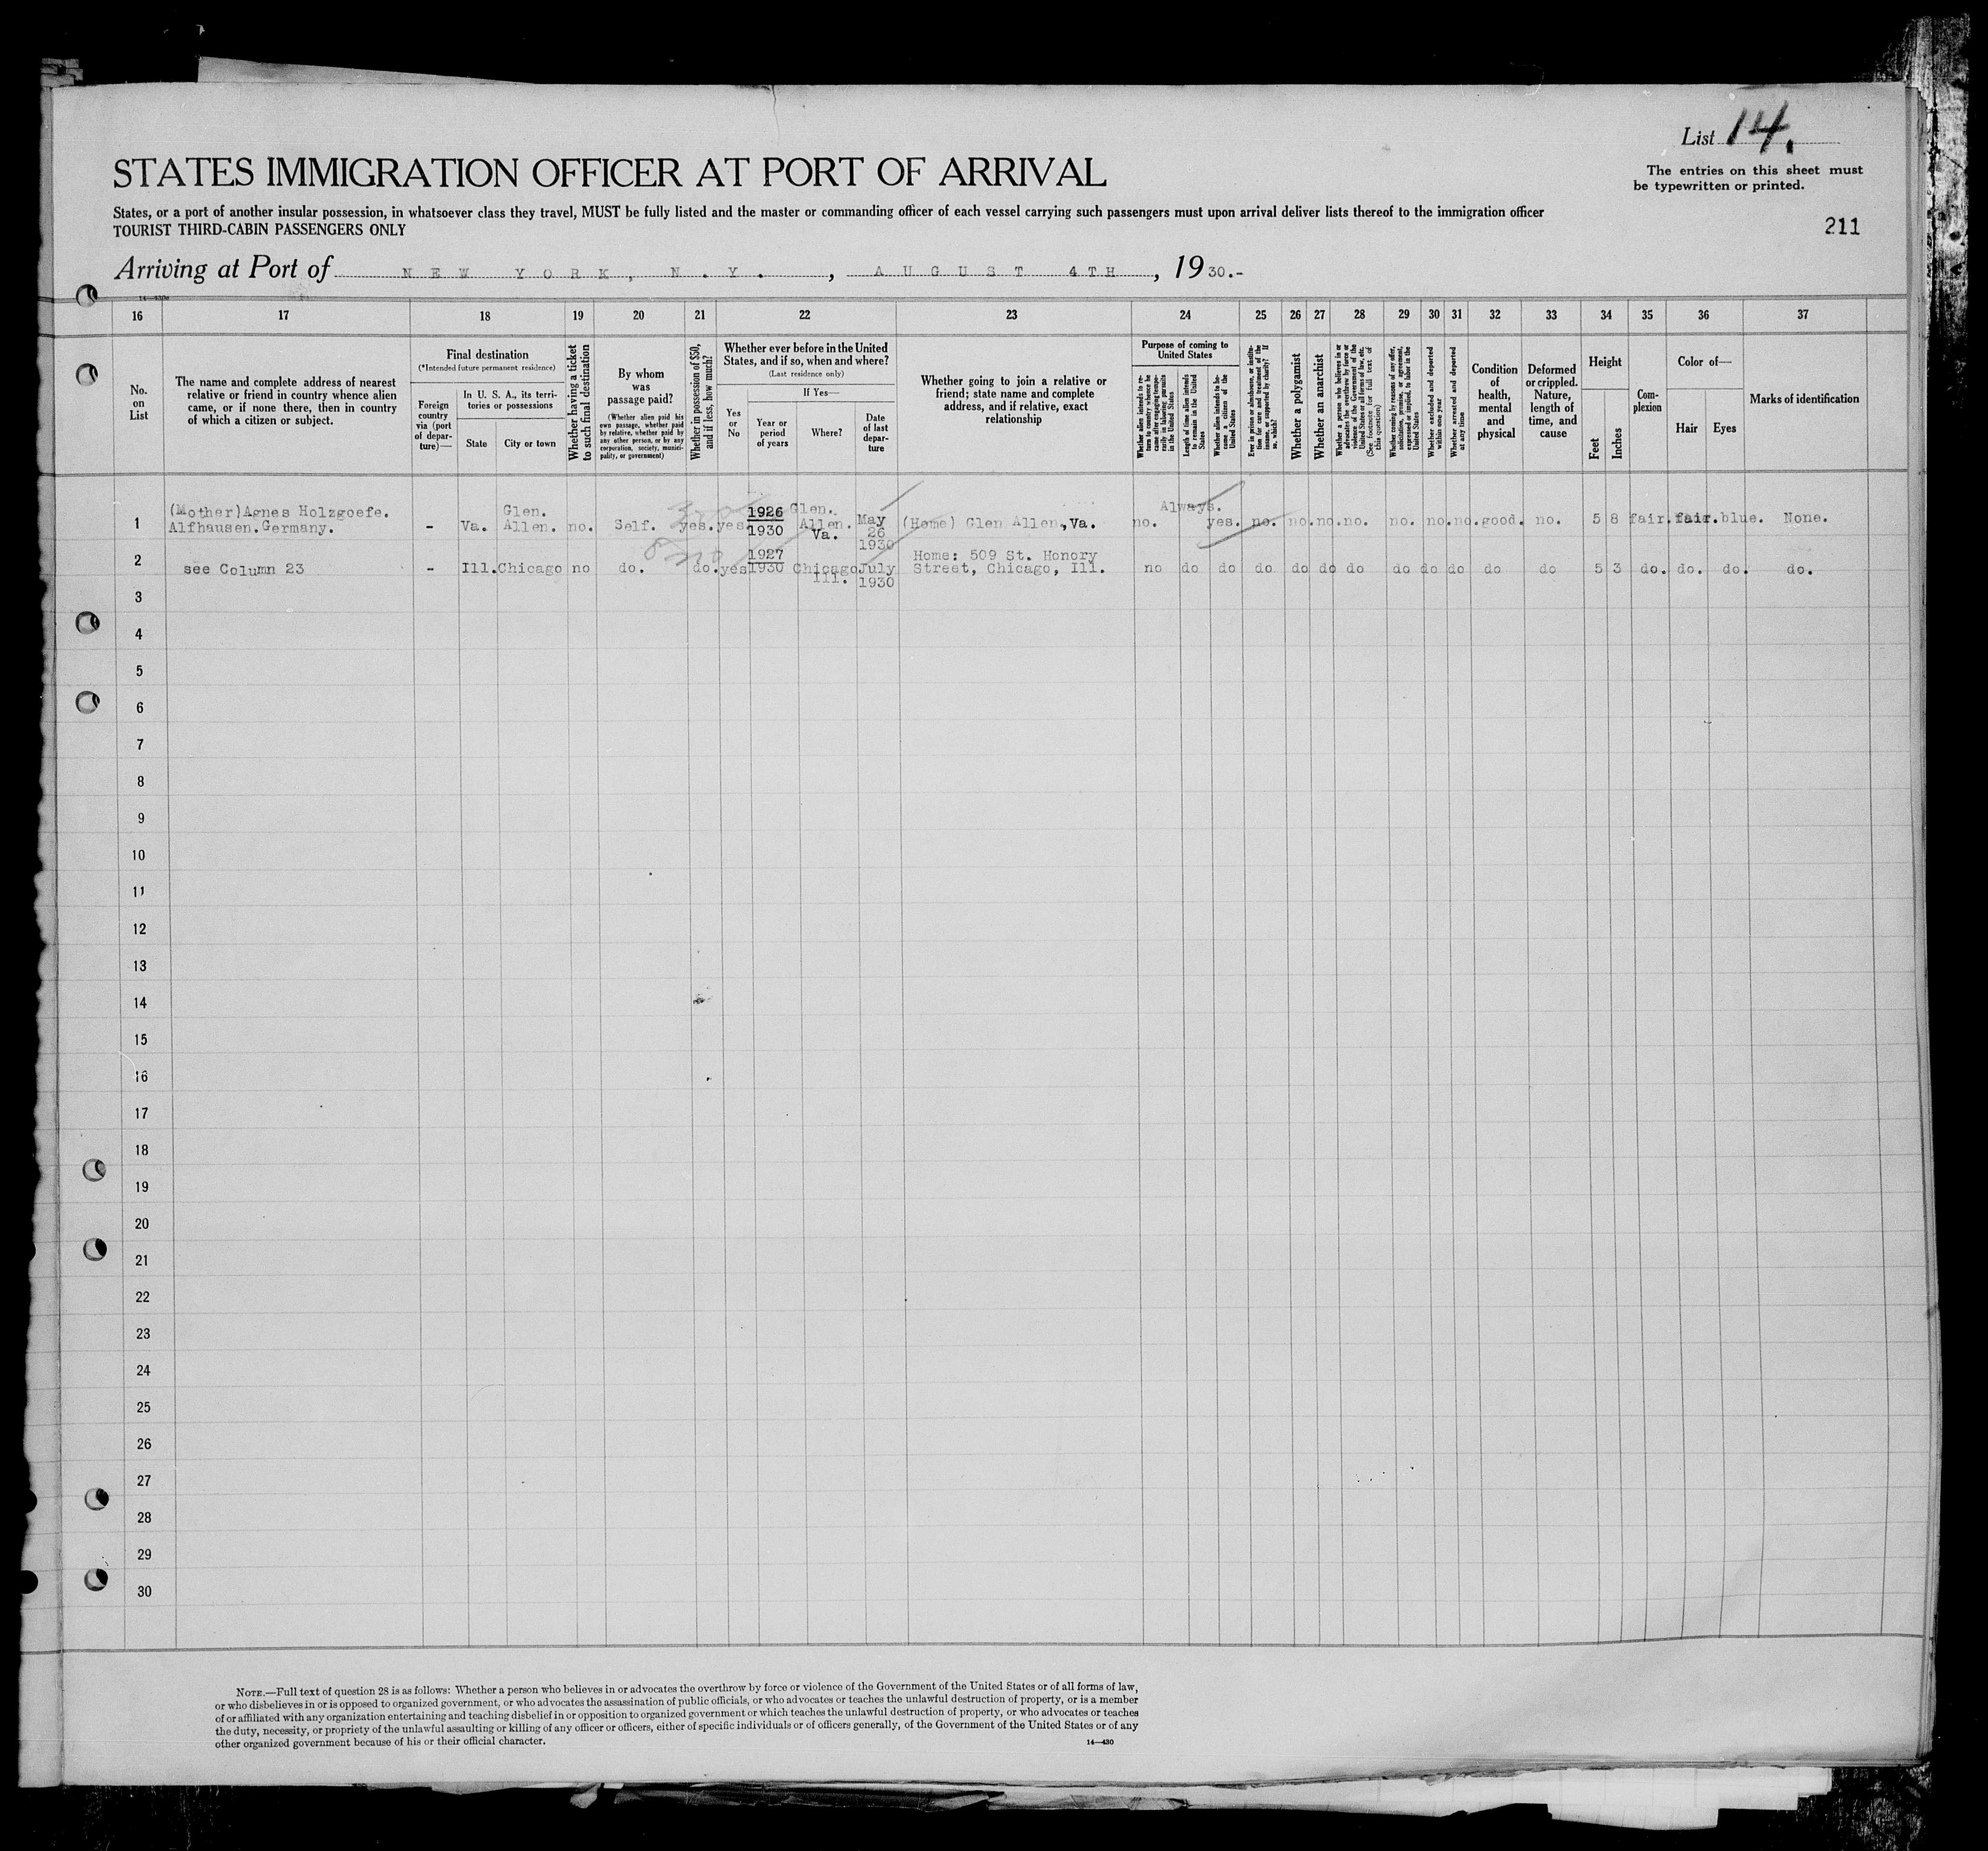 List 14.
The entries on this sheet must
be typewritten or printed.
STATES IMMIGRATION OFFICER AT PORT OF ARRIVAL
States, or a port of another insular possession, in whatsoever class they travel, MUST be fully listed and the master or commanding officer of each vessel carrying such passengers must upon arrival deliver lists thereof to the immigration officer
TOURIST THIRD-CABIN PASSENGERS ONLY
211
Arriving at Port of NEW YORK, N.Y. , AUGUST 4TH , 19 30.-
16 17 18 19 20 21 22 23 24 25 26 27 28 29 30 31 32 33 34 35 36 37
No.
on
List
The name and complete address of nearest
relative or friend in country whence alien
came, or if none there, then in country
of which a citizen or subject.
Final destination
(*Intended future permanent residence)
Foreign
country
via (port
of depar-
ture)—
In U. S. A., its terri-
tories or possessions
State
City or town
Whether having a ticket
to such final destination
By whom
was
passage paid?
(Whether alien paid his
own passage, whether paid
by relative, whether paid by
any other person, or by any
corporation, society, munici-
pality, or government)
Whether in possession of $50,
and if less, how much?
Whether ever before in the United
States, and if so, when and where?
(Last residence only)
Yes
or
No
If Yes—
Year or
period
of years
Where?
Date
of last
depar-
ture
Whether going to join a relative or
friend; state name and complete
address, and if relative, exact
relationship
Purpose of coming to
United States
Whether alien intends to re-
turn to country whence he
came after engaging tempo-
rarily in laboring pursuits
in the United States
Length of time alien intends
to remain in the United
States
Whether alien intends to be-
come a citizen of the
United States
Ever in prison or almshouse, or institu-
tion for care and treatment of the
insane, or supported by charity? If
so, which?
Whether a polygamist
Whether an anarchist
Whether a person who believes in or
advocates the overthrow by force or
violence of the Government of the
United States or all forms of law, etc.
(See footnote for full text of
this question)
Whether coming by reasons of any offer,
solicitation, promise, or agreement,
expressed or implied, to labor in the
United States
Whether excluded and deported
within one year
Whether arrested and deported
at any time
Condition
of
health,
mental
and
physical
Deformed
or crippled.
Nature,
length of
time, and
cause
Height
Feet
Inches
Com-
plexion
Color of—
Hair
Eyes
Marks of identification
1 (Mother)Agnes Holzgoefe.
Alfhausen.Germany.
- Va. Glen.
Allen. no. Self. yes. yes. 1926
1930 Glen.
Allen.
Va. May
26
1930 (Home) Glen Allen, Va. no. Always. yes. no. no. no. no. no. no. no. good. no. 5 8 fair. fair. blue. None.
2 see Column 23 - Ill. Chicago no do. do. yes 1927
1930 Chicago
Ill. July
1930 Home: 509 St. Honory
Street, Chicago, Ill. no do do do do do do do do do do do 5 3 do. do. do. do.
3
4
5
6
7
8
9
10
11
12
13
14
15
16
17
18
19
20
21
22
23
24
25
26
27
28
29
30
NOTE.—Full text of question 28 is as follows: Whether a person who believes in or advocates the overthrow by force or violence of the Government of the United States or of all forms of law,
or who disbelieves in or is opposed to organized government, or who advocates the assassination of public officials, or who advocates or teaches the unlawful destruction of property, or is a member
of or affiliated with any organization entertaining and teaching disbelief in or opposition to organized government or which teaches the unlawful destruction of property, or who advocates or teaches
the duty, necessity, or propriety of the unlawful assaulting or killing of any officer or officers, either of specific individuals or of officers generally, of the Government of the United States or of any
other organized government because of his or their official character.
14—430